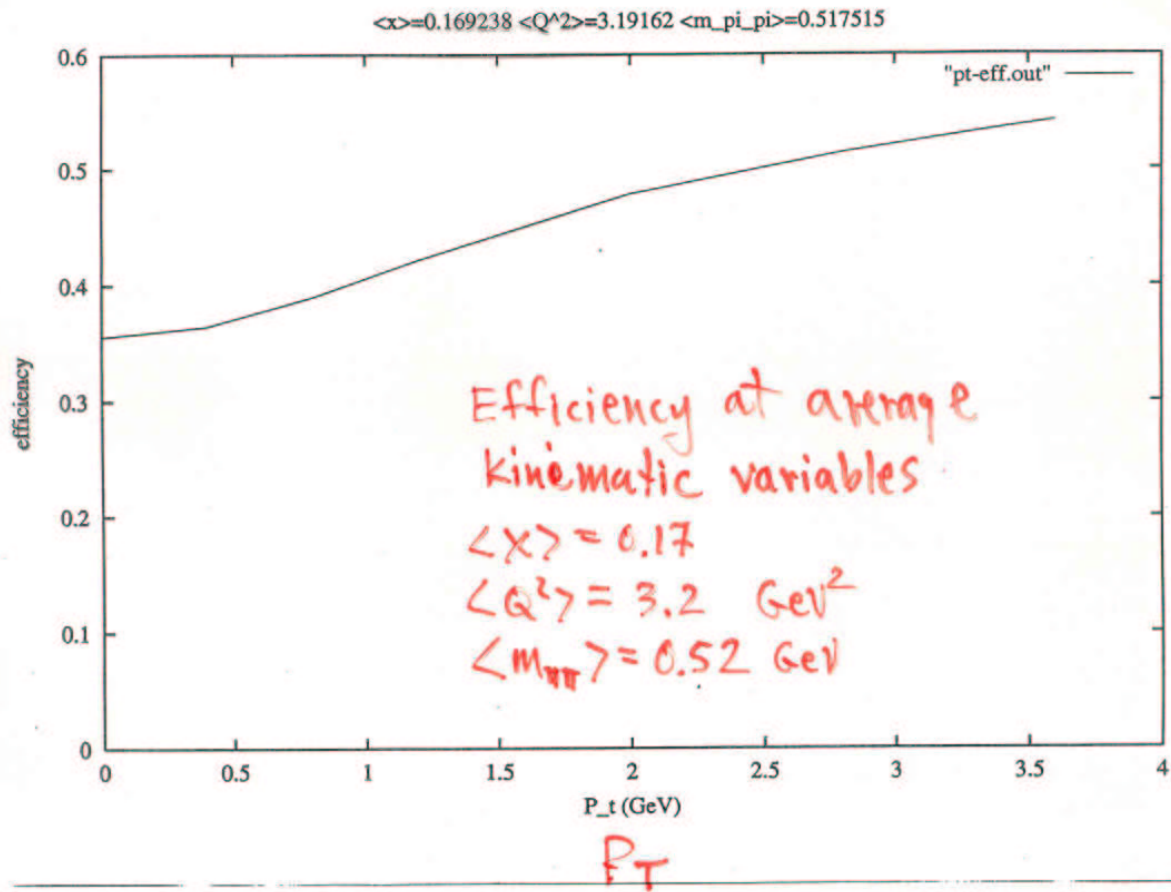 <x>=0.169238 <Q^2>=3.19162 <m_pi_pi>=0.517515
"pt-eff.out"
0.6
0.5
0.4
0.3
0.2
0.1
0
efficiency
Efficiency at average
kinematic variables
<x> = 0.17
<Q²> = 3.2 GeV²
<mππ> = 0.52 GeV
0 0.5 1 1.5 2 2.5 3 3.5 4
P_t (GeV)
PT